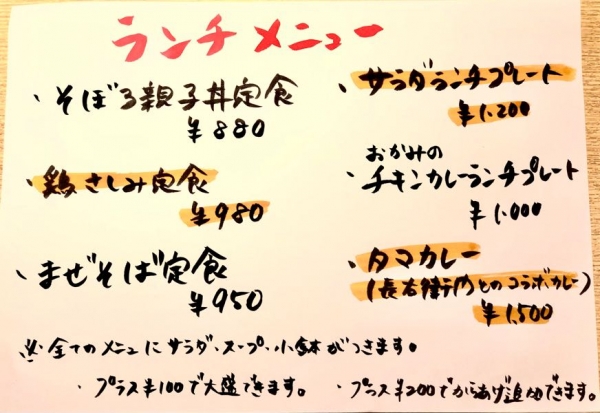 ランチメニュー
・そぼろ親子丼定食
¥880
・鶏さしみ定食
¥980
・まぜそば定食
¥950
・サラダランチプレート
¥1,200
おかみの
・チキンカレーランチプレート
¥1,000
・タマカレー
(長右衛門とのコラボカレー)
¥1,500
※全てのメニューにサラダ、スープ、小鉢がつきます。
・プラス¥100で大盛できます。
・プラス¥200でからあげ追加できます。